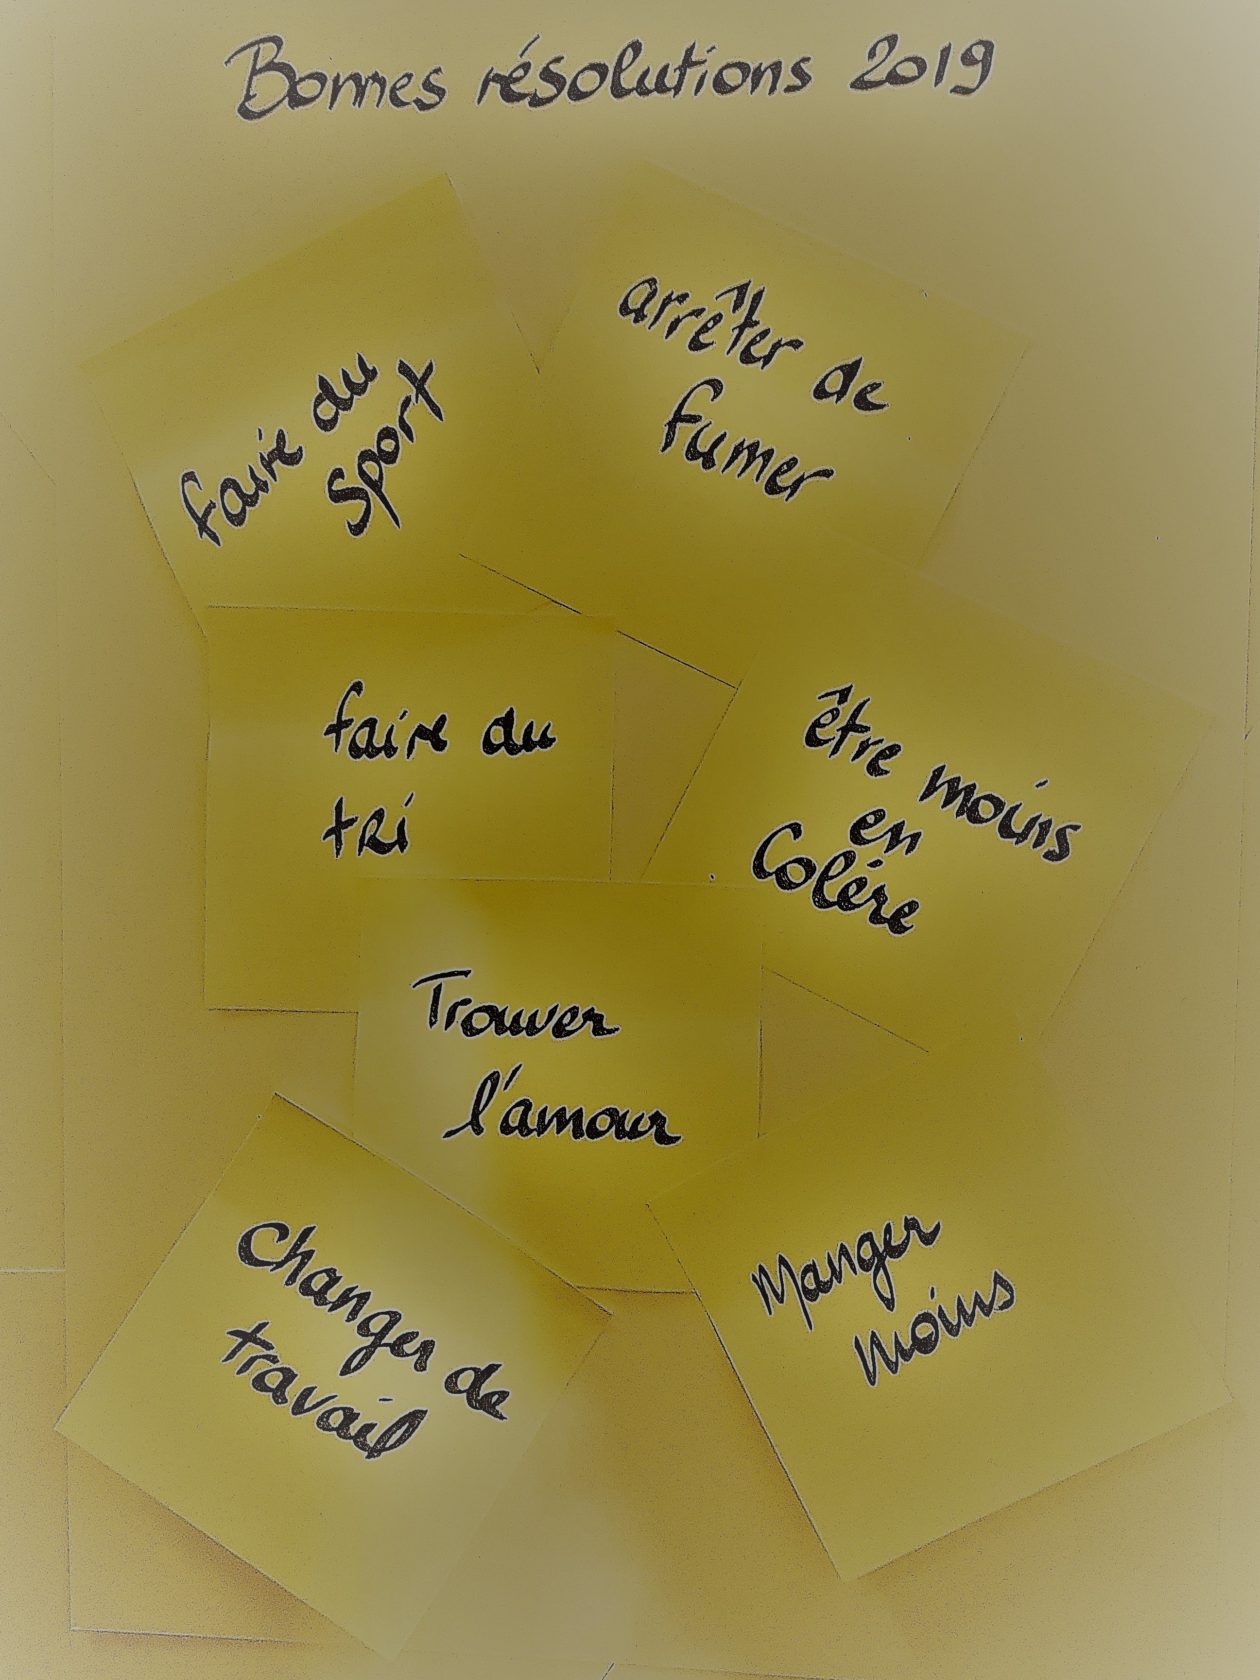 Bonnes résolutions 2019
faire du
sport
arrêter de
fumer
faire du
tri
être moins
en
Colère
Trouver
l'amour
Changer de
travail
Manger
moins